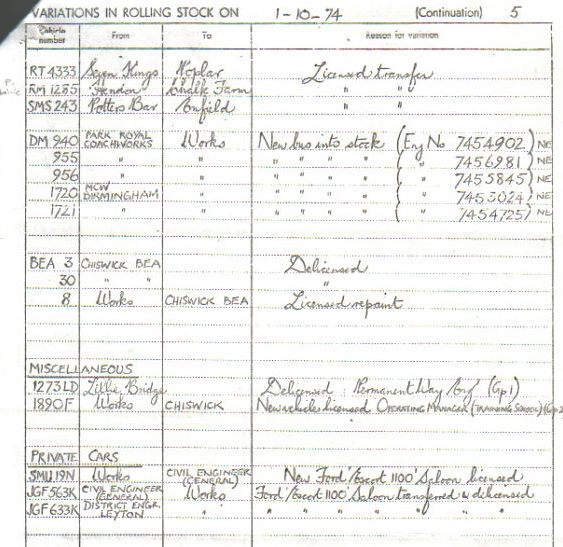 VARIATIONS IN ROLLING STOCK ON 1-10-74 (Continuation) 5
Vehicle number From To Reason for variation
RT 4333 Seven Kings Poplar Licensed transfer
RM 1285 Hendon Chalk Farm " "
SMS 243 Potters Bar Enfield
DM 940 PARK ROYAL COACHWORKS Works New bus into stock (Eng No 7454902) NE
955 " " " " " " ( " 7456981) NE
956 " " " " " " ( " 7455845) NE
1720 MCW BIRMINGHAM " " " " " ( " 7453024) NE
1721 " " " " " " ( " 7454725) NE
BEA 3 CHISWICK BEA Delicensed
30 " " "
8 Works CHISWICK BEA Licensed repaint
MISCELLANEOUS
1273LD Lillie Bridge Delicensed Permanent Way (Gp1)
1890F Works CHISWICK New vehicle licensed OPERATING MANAGER (TRAINING SCHOOL) (Gp2
PRIVATE CARS
SMU19N Works CIVIL ENGINEER (GENERAL) New Ford 'Escort 1100' Saloon licensed
JGF563K CIVIL ENGINEER (GENERAL) Works Ford 'Escort 1100' Saloon transferred & delicensed
JGF633K DISTRICT ENGR. LEYTON " " " " " " "